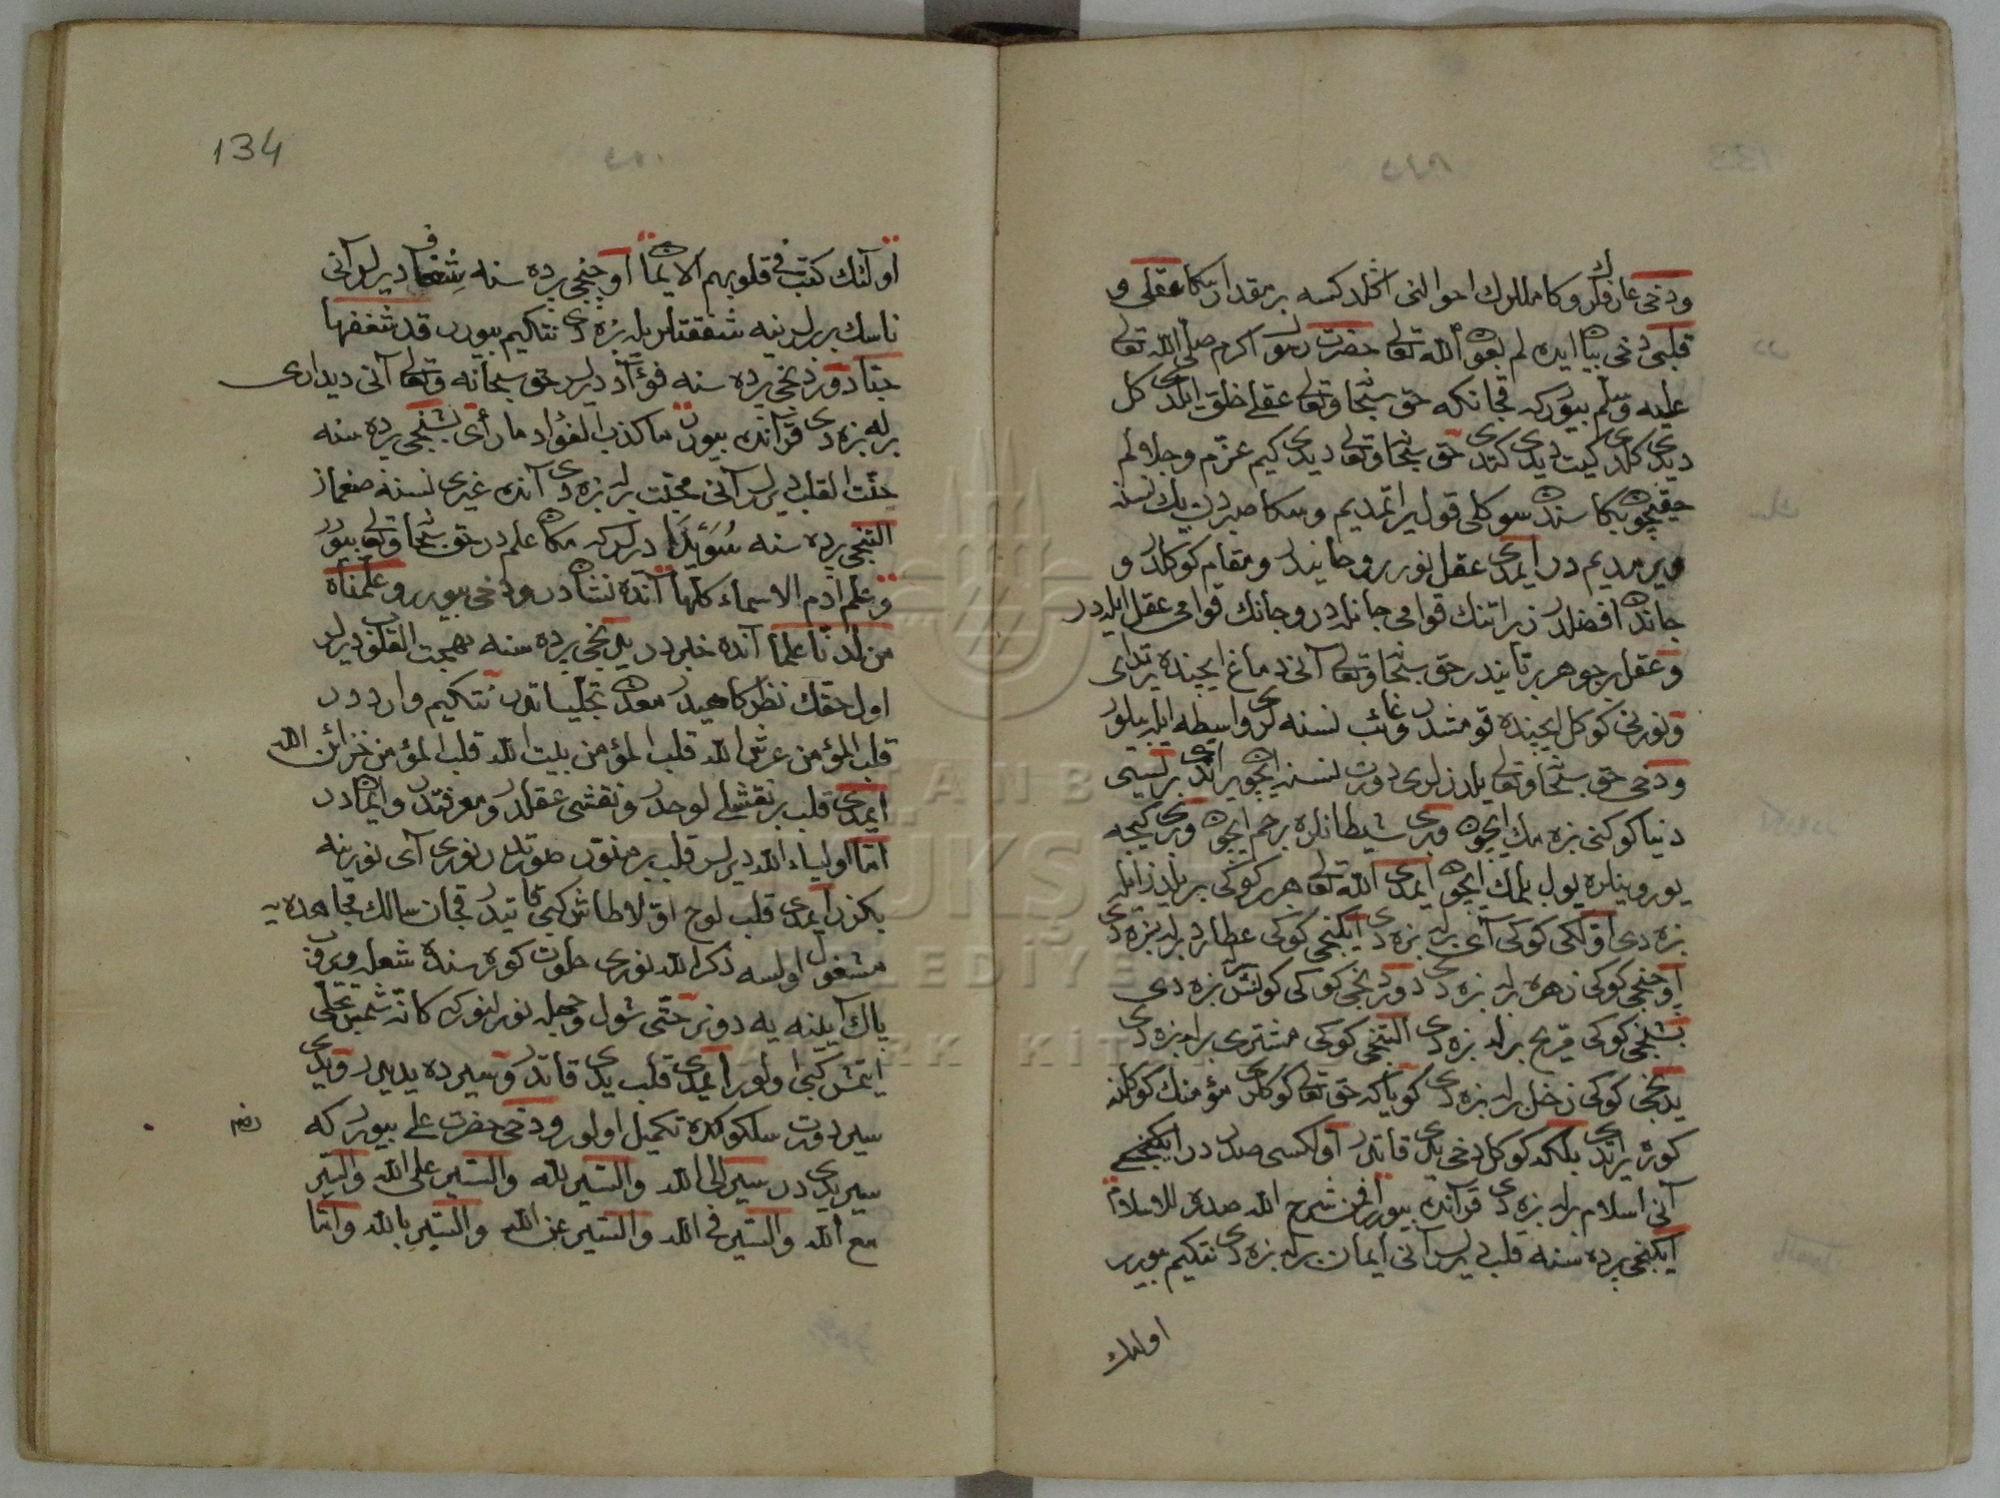 ودخی عارفلرك وكاملارك احوالنی اكلد كسه بر مقدار سكا عقلی و
قلبی دخی بیان ایده لم بعون الله تعالی حضرت رسول اكرم صلی الله تعالی
علیه وسلم بیوررکه قچانکه حق سبحانه وتعالی عقلی خلق ایلدی كل
دیدی كلدی كیت دیدی كتدی حق سبحانه وتعالی دیدی كیم عزم وجلالم
حقیچون بكا سندن سوكلی قول یراتمدیم وسكا صبردن یك نسنه
ویرمدیم در ایمدی عقل نوردر روحانیدر ومقام كوكلدر و
جاندن افضلدر زیرا تنك قوامی جانلدر وجانك قوامی عقل ایلدر
وعقل بر جوهر بتابنددر حق سبحانه وتعالی آنی دماغ ایچنده یرتدی
ونورنی كوكل ایچنده قومشدر وغائب نسنه لری واسطه ایله بیلور
ودخی حق سبحانه وتعالی یلدزلری دورت نسنه ایچون یراتدی بریسی
دنیا كوكنی بزه مك ایچون وبری شیطانلره رجم ایچون وبری كیجه
یورویناره یول بلمك ایچون ایمدی الله تعالی هر كوكی بر یلدز ایله
بزه دی اوّلكی كوكی آی برله بزه دی ایكنجی كوكی عطارد برله بزه دی
اوچنجی كوكی زهره برله بزه دی دوردنجی كوكی كونش برله بزه دی
بشنجی كوكی مریخ برله بزه دی التنجی كوكی مشتری برله بزه دی
یدنجی كوكی زحل برله بزه دی كویاكه حق تعالی كوكلری مؤمنك كوكلنه
كوره یراتدی بلكه كوكل دخی یدی قاتدر اولكسی صدر در ایكنجی
آنی اسلام برله بزه دی قرآنده بیورر افمن شرح الله صدره للاسلام
ایكنجی پرده سنه قلب دیرلر آنی ایمان برله بزه دی نتكیم بیورر
اولئك
134
اولئك كتب فی قلوبهم الایمان اوچنجی پرده سنه شغاف دیرلر آنی
ناسك بربرلرینه شفقتلریله بزه دی نتكیم بیورر قد شغفها
حبّا دوردنجی پرده سنه فؤاد دیرلر حق سبحانه وتعالی آنی دیداری
برله بزه دی قرآنده بیورر ما كذب الفؤاد ما رأی بشنجی پرده سنه
حبّت القلب دیرلر آنی محبّت برله بزه دی آنده غیری نسنه صغماز
التنجی پرده سنه سُوَیْدَا دیرلركه مكان علم در حق سبحانه وتعالی بیورر
وعلم آدم الاسماء كلها آنده نشان در ودخی بیورر وعلّمناه
من لدنا علما آنده خبردر یدنجی پرده سنه بهجت القلوب دیرلر
اول حقك نظركاهیدر معدن تجلّیاتدر نتكیم وارد در
قلب المؤمن عرش الله قلب المؤمن بیت الله قلب المؤمن خزائن الله
ایمدی قلب بر نقشلی لوحدر ونقشی عقلدر ومعرفتدر وایماندر
امّا اولیاء الله دیرلر قلب بر صنوبر صورتلدر نوری آی نورینه
بكزر ایمدی قلب لوح اوّلا طاش كبی قاتیدر قچان سالك مجاهده یه
مشغول اولسه ذكر الله نوری خلوت كوره سنده شعله ویروب
پاك آینه یه دونر حتّی شول وجهله نورلنوركه كانّه شمس تجلّی
ایتمش كبی اولور ایمدی قلب یدی قاتدر وسیرده یدیدر ویدی
سیر دورت سلوكده تكمیل اولور ودخی حضرت علی بیوررکه
سیر یدی در سیر الی الله والسیر لله والسیر علی الله والسیر
مع الله والسیر فی الله والسیر عن الله والسیر بالله وامّا